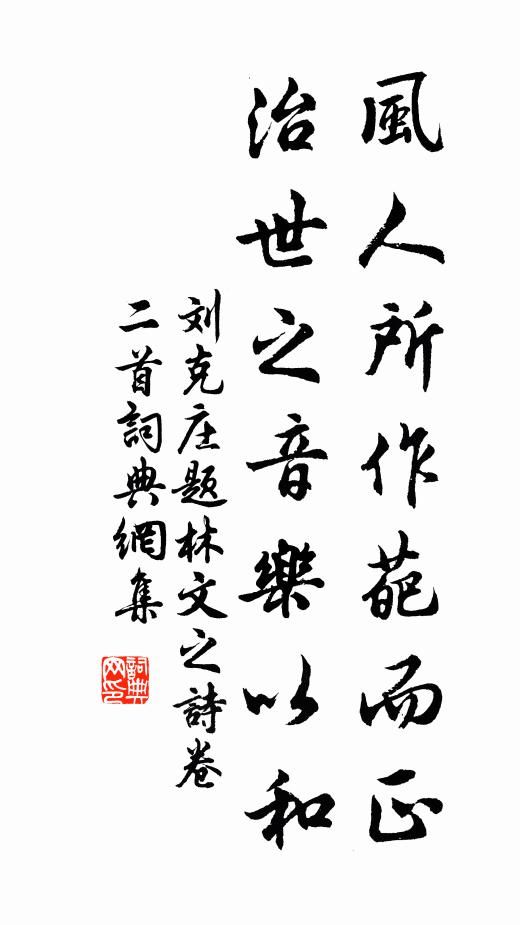 風人所作葩而正
治世之音樂以和
刘克庄題林文之詩卷
二首詞典網集
詞典网印